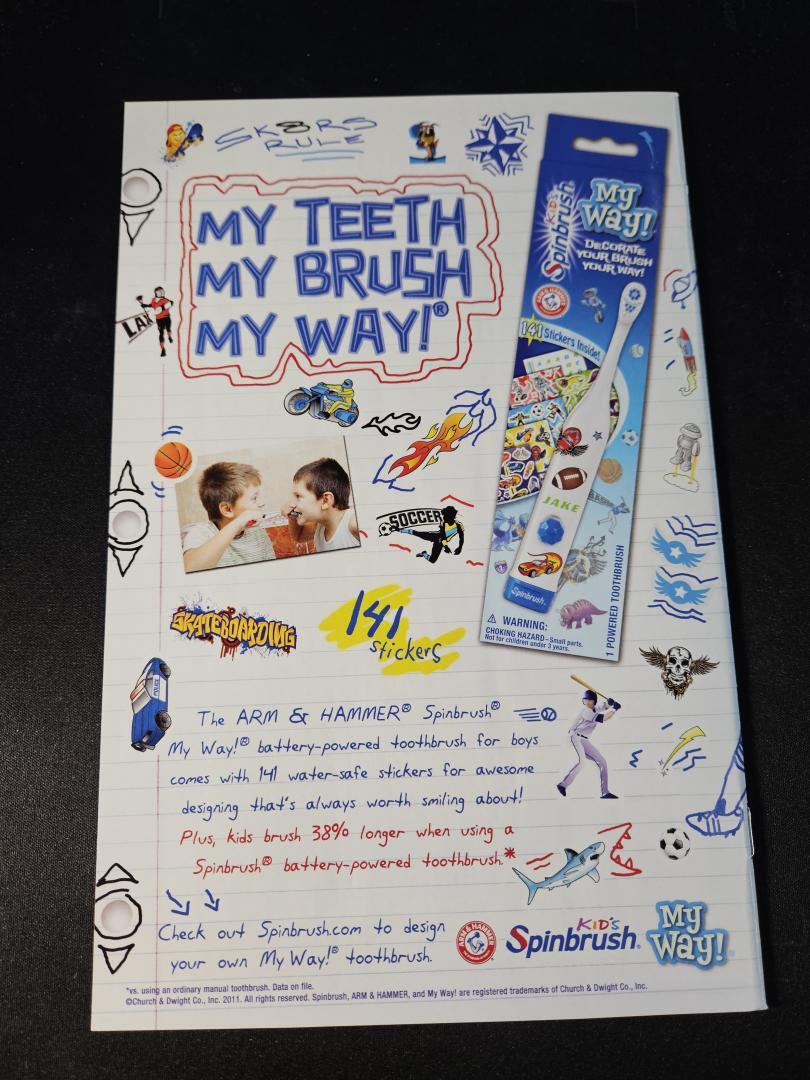 SK8RS
RULE
MY TEETH
MY BRUSH
MY WAY!®
LAX
KID'S
Spinbrush
My
Way!
DECORATE
YOUR BRUSH
YOUR WAY!
ARM & HAMMER
141 Stickers Inside!
JAKE
Spinbrush
1 POWERED TOOTHBRUSH
WARNING:
CHOKING HAZARD–Small parts.
Not for children under 3 years.
SOCCER
SKATEBOARDING
141
stickers
POLICE
The ARM & HAMMER® Spinbrush®
My Way!® battery-powered toothbrush for boys
comes with 141 water-safe stickers for awesome
designing that's always worth smiling about!
Plus, kids brush 38% longer when using a
Spinbrush® battery-powered toothbrush.*
Check out Spinbrush.com to design
your own My Way!® toothbrush.
ARM & HAMMER
KID'S
Spinbrush®
My
Way!
*vs. using an ordinary manual toothbrush. Data on file.
©Church & Dwight Co., Inc. 2011. All rights reserved. Spinbrush, ARM & HAMMER, and My Way! are registered trademarks of Church & Dwight Co., Inc.